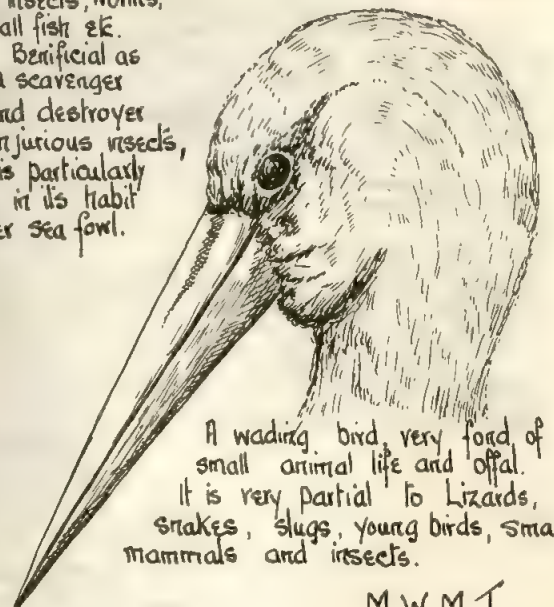 insects, worms,
all fish etc.
Benificial as
a scavenger
nd destroyer
njurious insects,
is particularly
in it's habit
er sea fowl.
A wading bird, very fond of
small animal life and offal.
It is very partial to Lizards,
snakes, slugs, young birds, sma
mammals and insects.
M.W.M.T